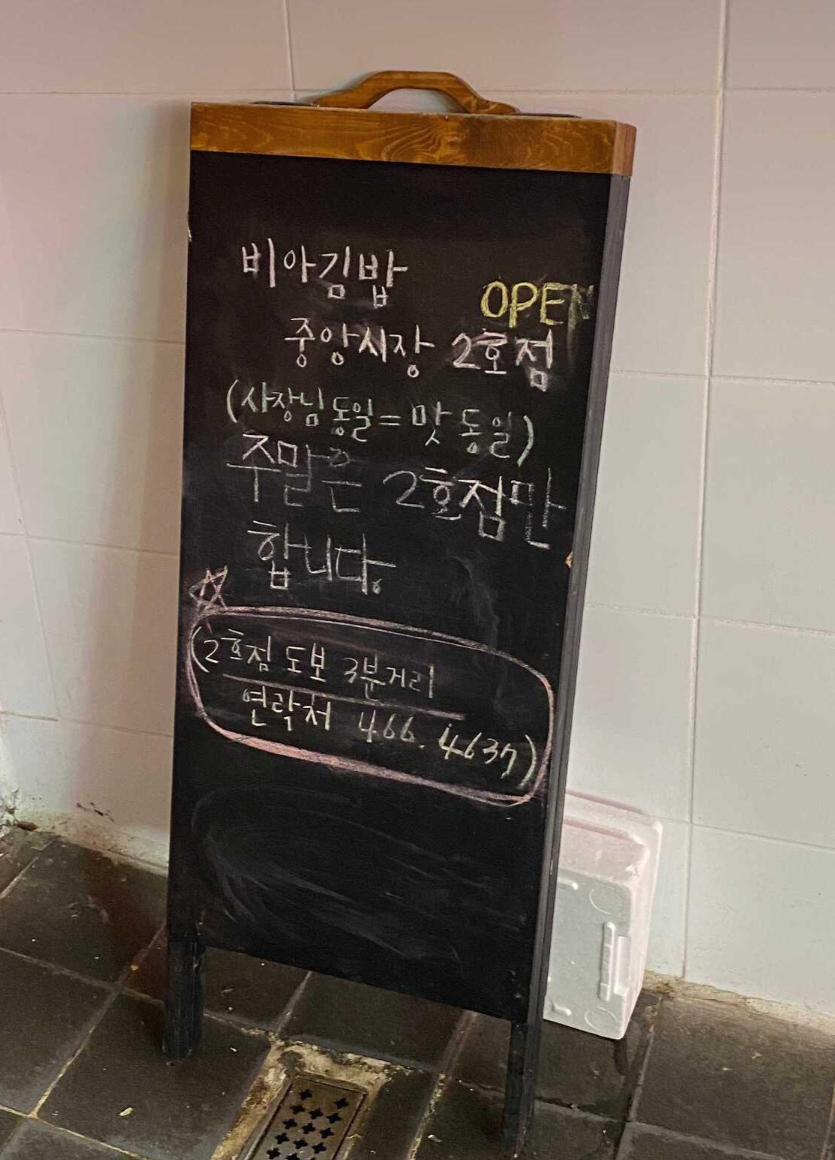 비아김밥
OPEN
중앙시장 2호점
(사장님동일=맛동일)
주말은 2호점만
합니다.
(2호점 도보 3분거리
연락처 466.4637)